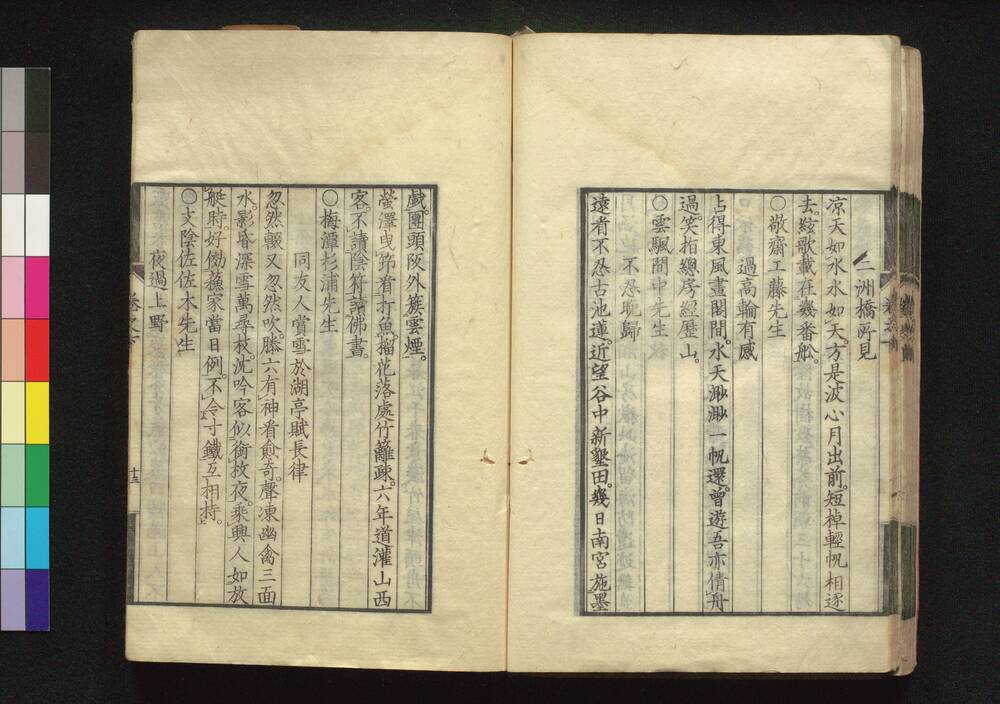 二洲橋所見
凉天如水水如天。方是波心月出前。短棹輕帆相逐
去。絃歌載在幾番舩。
〇敬齋工藤先生
過高輪有感
占得東風畫閣間。水天渺渺一帆還。曾遊吾亦倩舟
過。笑指總房經歷山。
〇雲颿間中先生
遠看不忍古池蓮。近望谷中新墾田。幾日南宮施墨
戯。團頭阪外簇雲煙。
螢澤曳筇看打魚。榴花落處竹籬疎。六年道灌山西
客。不讀陰符讀佛書。
〇梅潭杉浦先生
同友人賞雪於湖亭賦長律
忽然輟又忽然吹。滕六有神看愈奇。聲凍幽禽三面
水。影昏深雪萬尋枝。沈吟客似銜枚夜。乘興人如放
艇時。好傚蘓家當日例。不令寸鐵互相持。
〇支陰佐佐木先生
夜過上野
十五